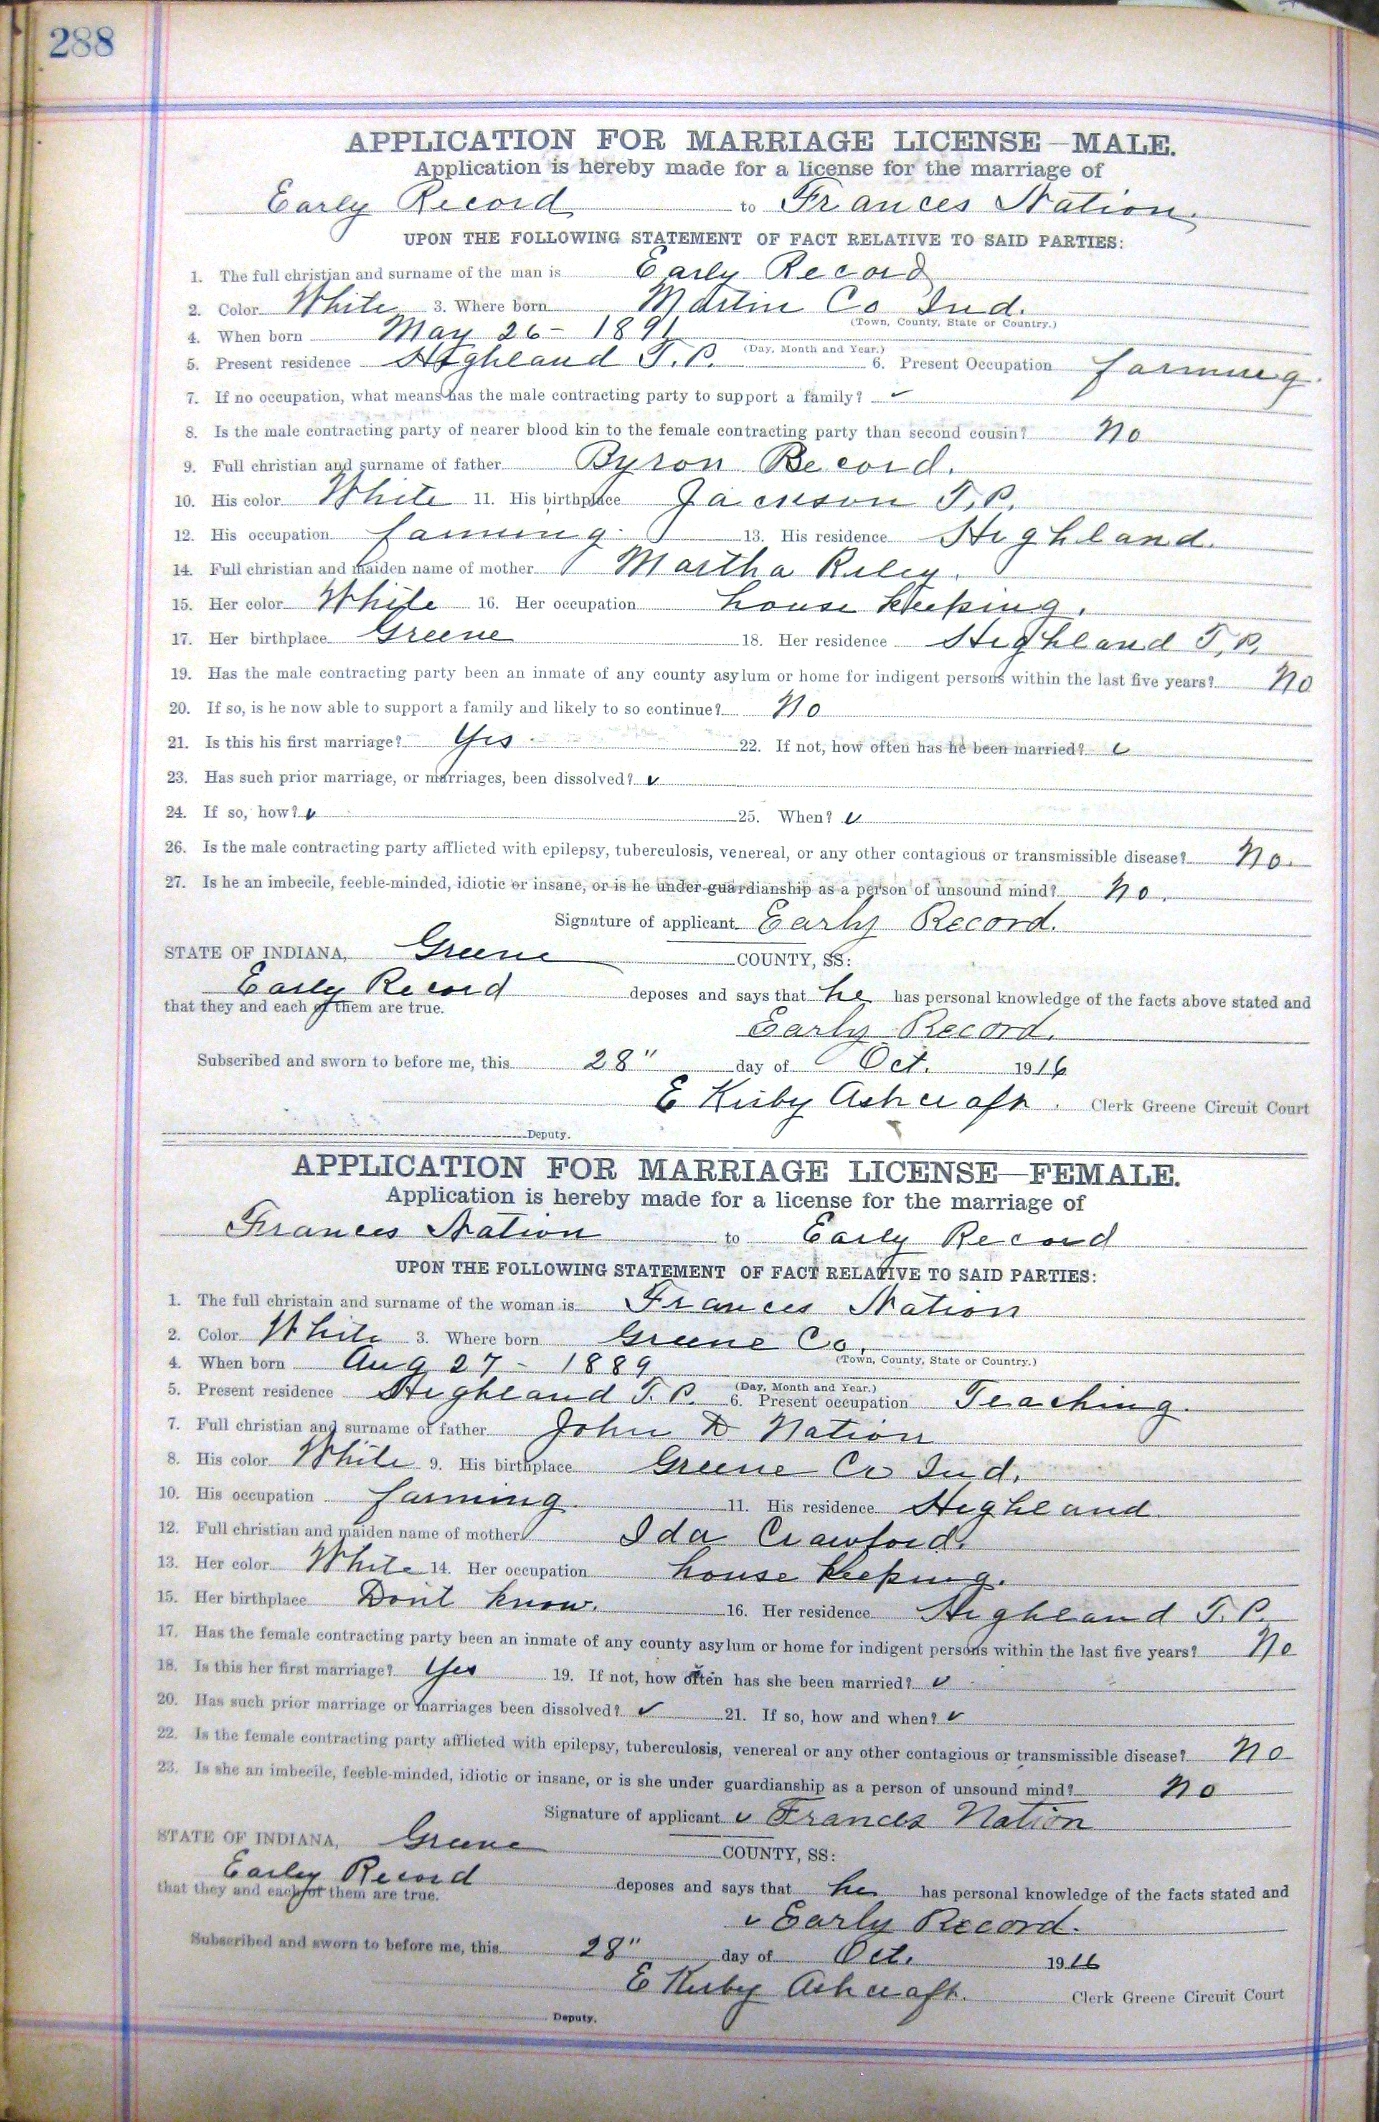 288
APPLICATION FOR MARRIAGE LICENSE—MALE.
Application is hereby made for a license for the marriage of
Early Record to Frances Nation,
UPON THE FOLLOWING STATEMENT OF FACT RELATIVE TO SAID PARTIES:
1. The full christian and surname of the man is Early Record
2. Color White 3. Where born Martin Co Ind.
(Town, County, State or Country.)
4. When born May 26 - 1891
(Day, Month and Year.)
5. Present residence Highland T.P. 6. Present Occupation farming.
7. If no occupation, what means has the male contracting party to support a family? ✓
8. Is the male contracting party of nearer blood kin to the female contracting party than second cousin? No
9. Full christian and surname of father Byron Record.
10. His color White 11. His birthplace Jackson T.P.
12. His occupation farming. 13. His residence Highland.
14. Full christian and maiden name of mother Martha Riley.
15. Her color White 16. Her occupation house keeping.
17. Her birthplace Greene 18. Her residence Highland T.P.
19. Has the male contracting party been an inmate of any county asylum or home for indigent persons within the last five years? No
20. If so, is he now able to support a family and likely to so continue? No
21. Is this his first marriage? Yes. 22. If not, how often has he been married? ✓
23. Has such prior marriage, or marriages, been dissolved? ✓
24. If so, how? ✓ 25. When? ✓
26. Is the male contracting party afflicted with epilepsy, tuberculosis, venereal, or any other contagious or transmissible disease? No.
27. Is he an imbecile, feeble-minded, idiotic or insane, or is he under guardianship as a person of unsound mind? No.
Signature of applicant Early Record.
STATE OF INDIANA, Greene COUNTY, SS:
Early Record deposes and says that he has personal knowledge of the facts above stated and
that they and each of them are true.
Early Record.
Subscribed and sworn to before me, this 28" day of Oct. 1916
E Kirby Ashcraft. Clerk Greene Circuit Court
Deputy.
APPLICATION FOR MARRIAGE LICENSE—FEMALE.
Application is hereby made for a license for the marriage of
Frances Nation to Early Record
UPON THE FOLLOWING STATEMENT OF FACT RELATIVE TO SAID PARTIES:
1. The full christain and surname of the woman is Frances Nation
2. Color White 3. Where born Greene Co.
(Town, County, State or Country.)
4. When born Aug 27 - 1889
(Day, Month and Year.)
5. Present residence Highland T.P. 6. Present occupation Teaching.
7. Full christian and surname of father John D Nation
8. His color White 9. His birthplace Greene Co Ind.
10. His occupation farming. 11. His residence Highland
12. Full christian and maiden name of mother Ida Crawford.
13. Her color White 14. Her occupation house keeping.
15. Her birthplace Don't know. 16. Her residence Highland T.P.
17. Has the female contracting party been an inmate of any county asylum or home for indigent persons within the last five years? No
18. Is this her first marriage? Yes 19. If not, how often has she been married? ✓
20. Has such prior marriage or marriages been dissolved? ✓ 21. If so, how and when? ✓
22. Is the female contracting party afflicted with epilepsy, tuberculosis, venereal or any other contagious or transmissible disease? No
23. Is she an imbecile, feeble-minded, idiotic or insane, or is she under guardianship as a person of unsound mind? No
Signature of applicant ✓ Frances Nation
STATE OF INDIANA, Greene COUNTY, SS:
Early Record deposes and says that he has personal knowledge of the facts stated and
that they and each of them are true.
✓ Early Record.
Subscribed and sworn to before me, this 28" day of Oct. 1916
E Kirby Ashcraft. Clerk Greene Circuit Court
Deputy.